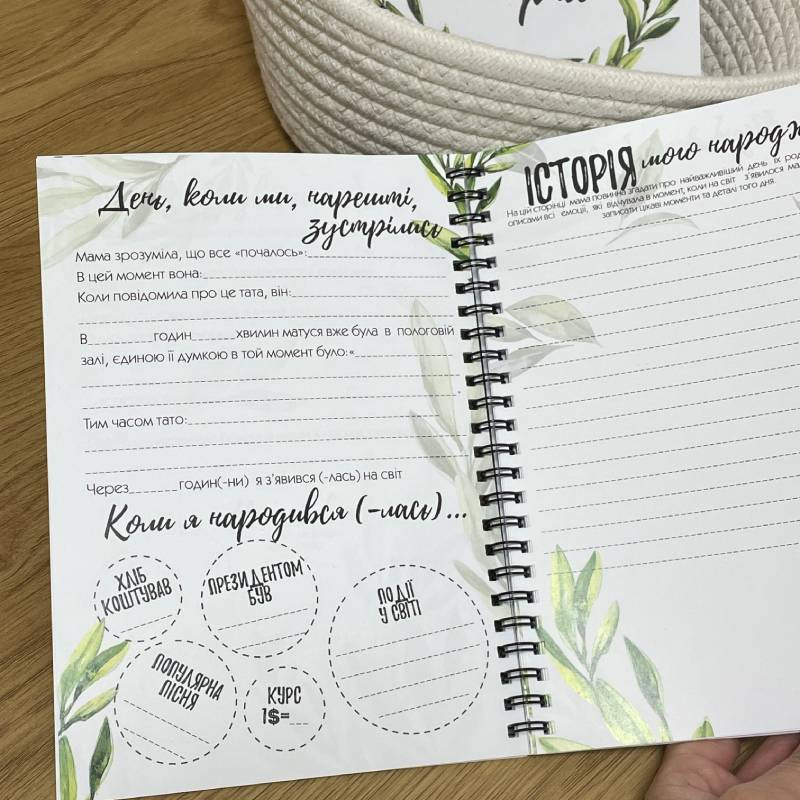 День, коли ми, нарешті,
зустрілись
Мама зрозуміла, що все «почалось»:
В цей момент вона:
Коли повідомила про це тата, він:
В________годин______хвилин матуся вже була в пологовій
залі, єдиною її думкою в той момент було:«
Тим часом тато:
Через______годин(-ни) я з'явився (-лась) на світ
Коли я народився (-лась)...
ХЛІБ
КОШТУВАВ
ПРЕЗИДЕНТОМ
БУВ
ПОДІЇ
У СВІТІ
ПОПУЛЯРНА
ПІСНЯ
КУРС
1$=__
ІСТОРІЯ мого народж
На цій сторінці мама повинна згадати про найважливіший день їх род
описами всі емоції, які відчувала в момент, коли на світ з'явилося ма
записати цікаві моменти та деталі того дня.